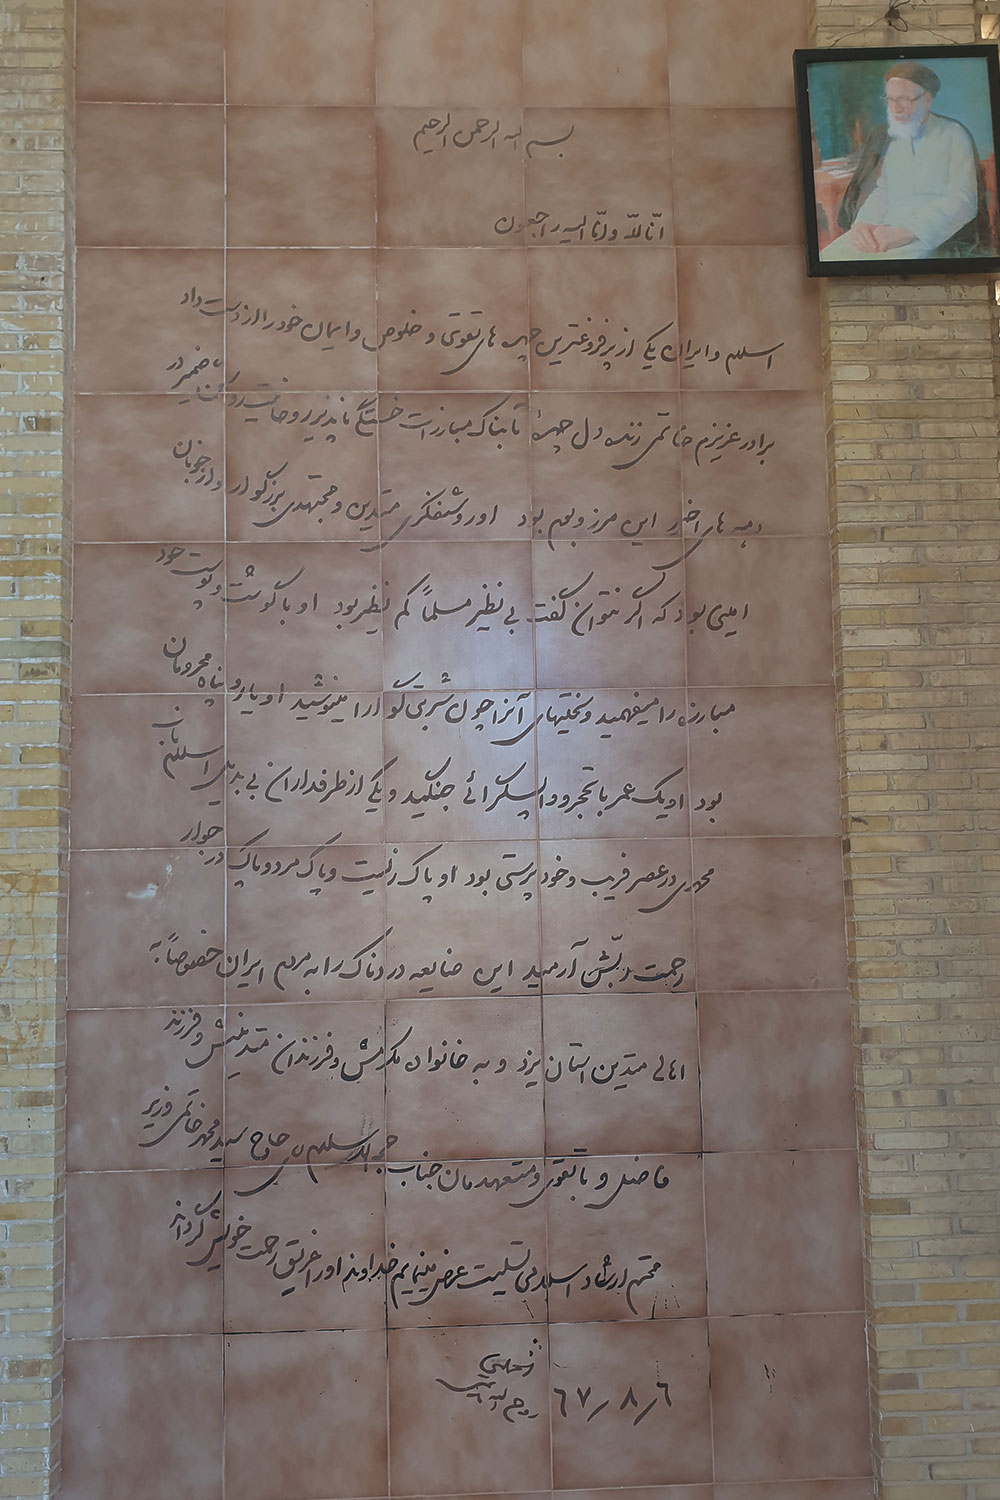 بسم الله الرحمن الرحیم
انّا للّه و انّا الیه راجعون
اسلام و ایران یکی از پرفروغترین چهره های تقوی و خلوص و ایمان خود را از دست داد
برادر عزیزم خاتمی زنده دل چهرهٔ تابناک مبارزات خستگی ناپذیر روحانیت روشن ضمیر در
دهه های اخیر این مرز و بوم بود او روشنفکری متدین و مجتهدی بزرگوار و از خوبان
امینی بود که اگر نتوان گفت بی نظیر مسلماً کم نظیر بود او با گوشت و پوست خود
مبارزه را میفهمید و سختیهای آنرا چون شربتی گوارا مینوشید او یار و پناه محرومان
بود او یک عمر با تحجر و واپسگرائی جنگید و یکی از طرفداران بی بدیل اسلام ناب
محمدی در عصر فریب و خودپرستی بود او پاک زیست و پاک مرد و پاک در جوار
رحمت ربّش آرمید این ضایعه دردناک را به مردم ایران خصوصاً به
اهالی متدین استان یزد و به خانواده مکرمش و فرزندان متدینش و فرزند
فاضل و باتقوی و متعهدمان جناب حجة الاسلام آقای حاج سید محمد خاتمی وزیر
محترم ارشاد اسلامی تسلیت عرض مینمایم خداوند او را غریق رحمت خویش گرداند
۶۷/۸/۶ روح الله الموسوی الخمینی